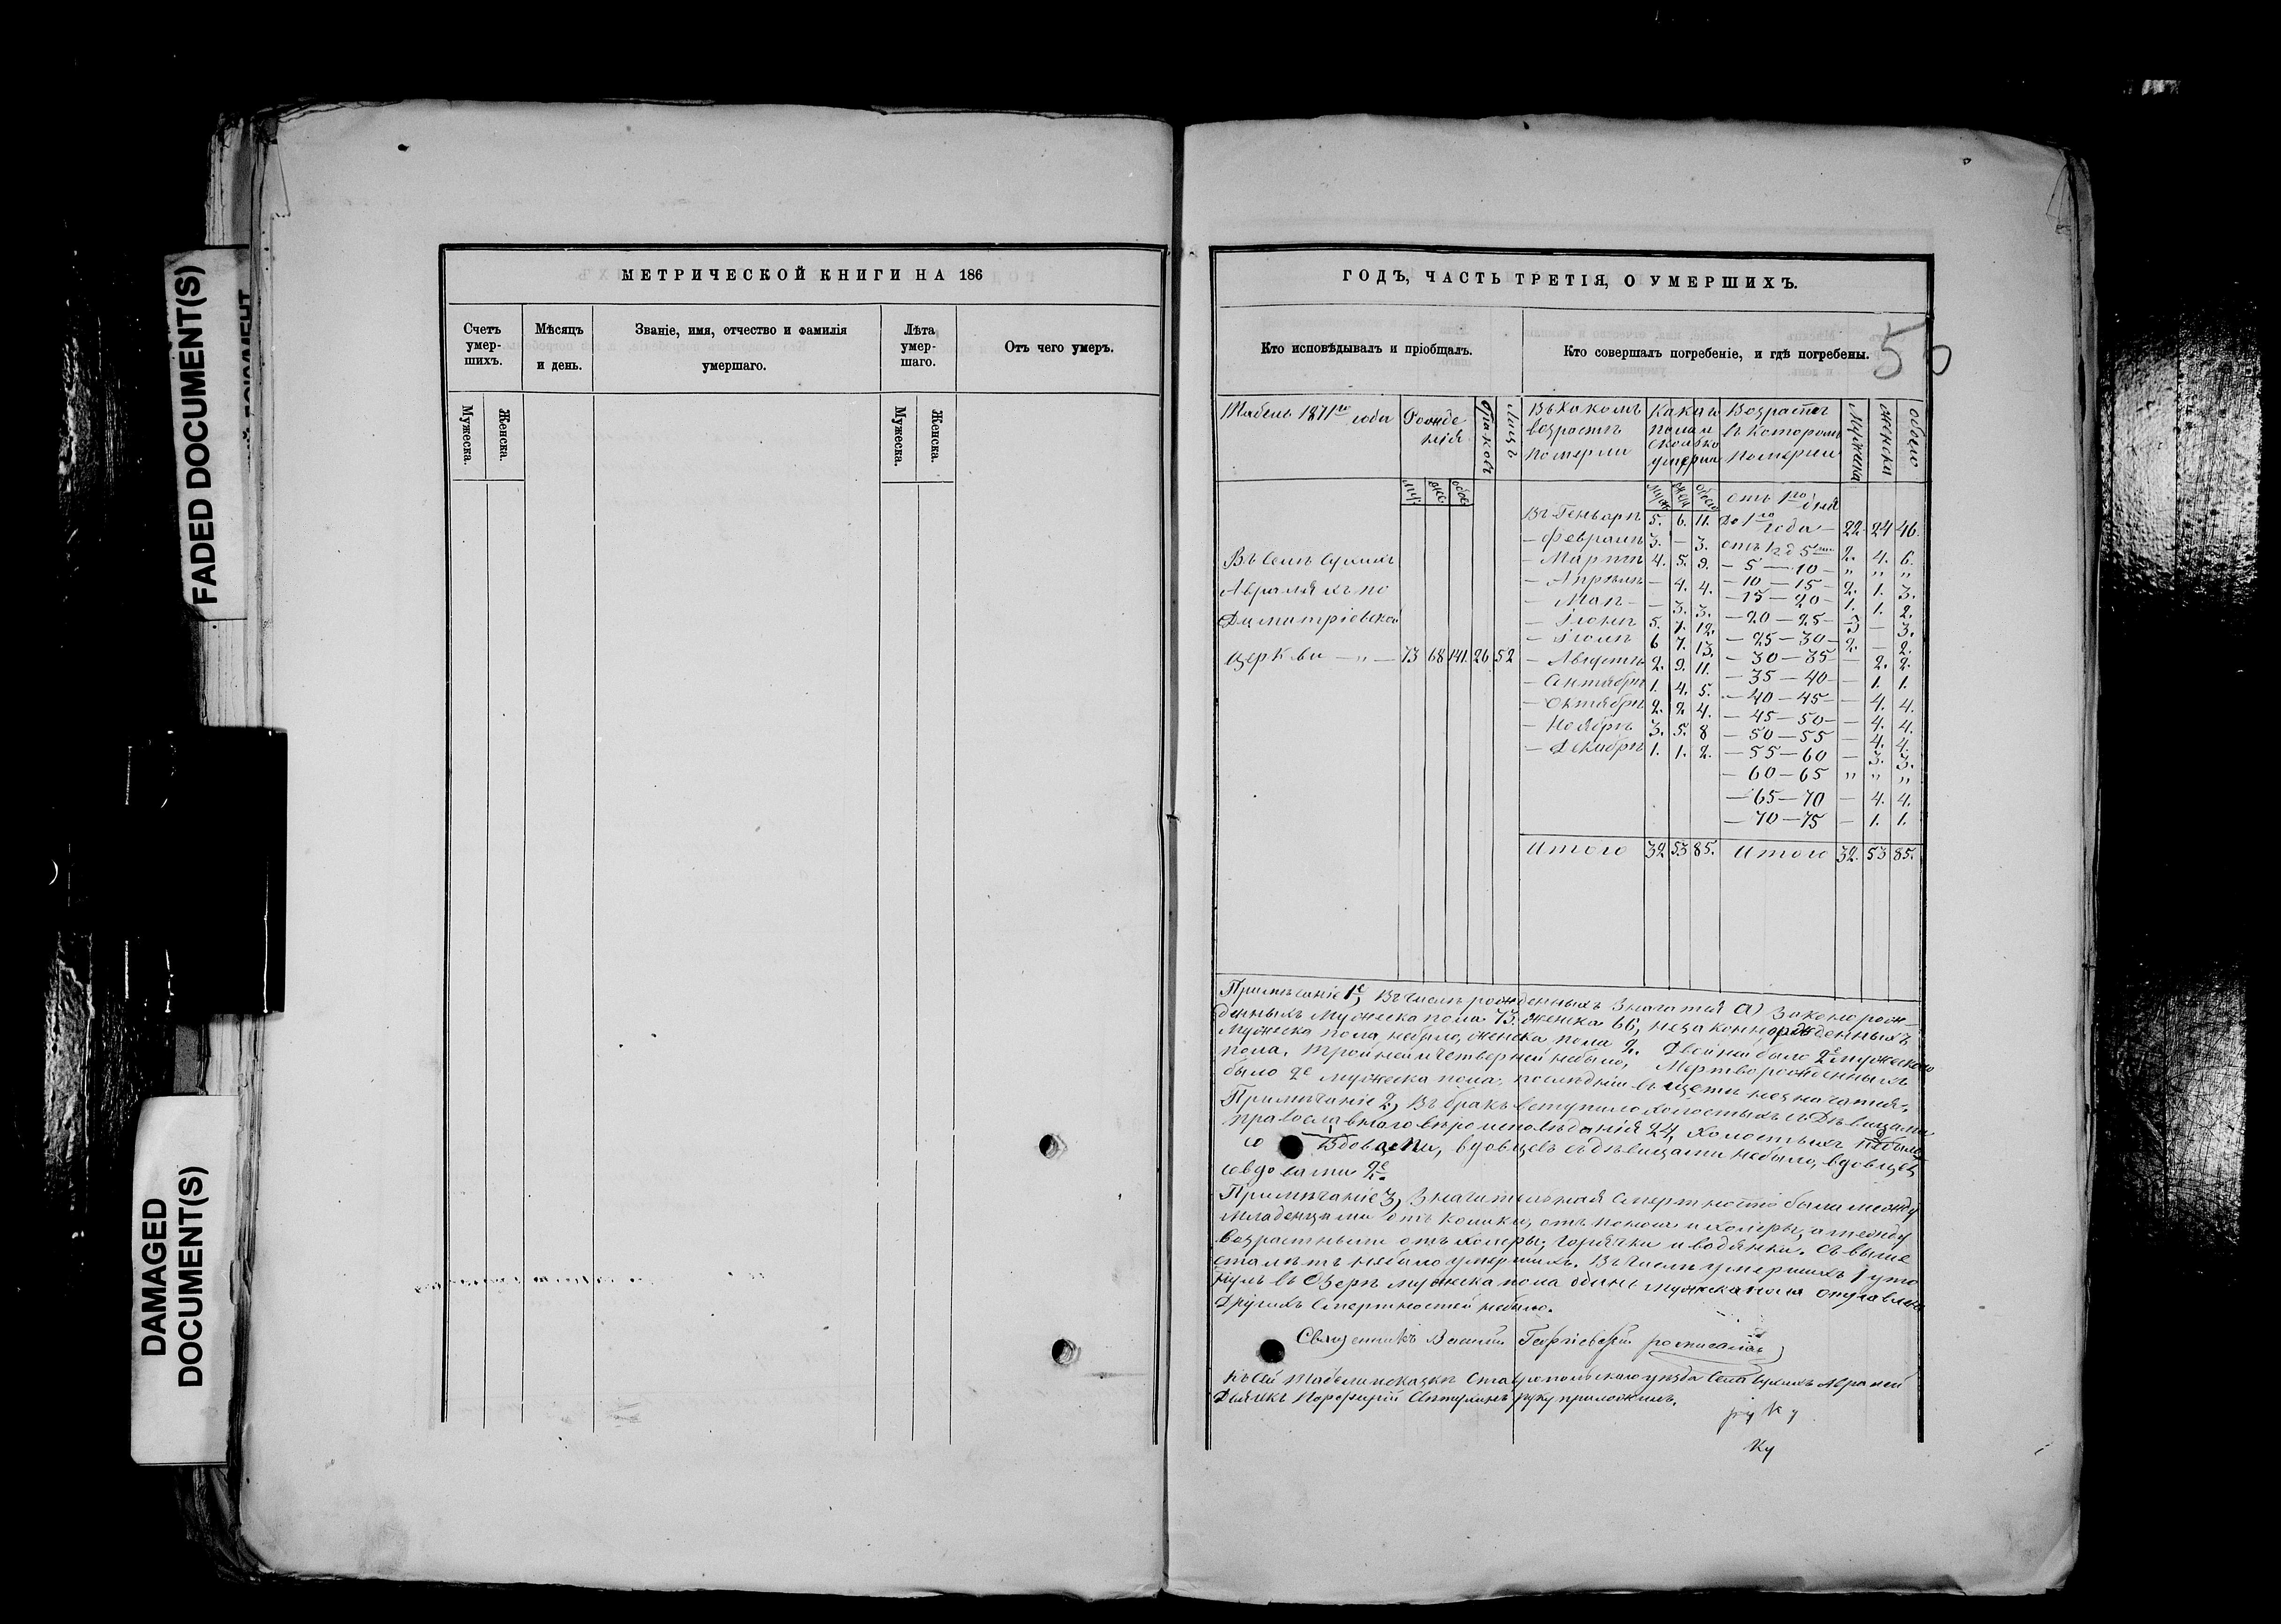 FADED DOCUMENT(S)
DAMAGED
DOCUMENT(S)
МЕТРИЧЕСКОЙ КНИГИ НА 186
Счетъ умер-шихъ.
Мѣсяцъ и день.
Званіе, имя, отчество и фамилія умершаго.
Лѣта умер-шаго.
Отъ чего умеръ.
Мужеска.
Женска.
Мужеска.
Женска.
ГОДЪ, ЧАСТЬ ТРЕТІЯ, О УМЕРШИХЪ.
Кто исповѣдывалъ и пріобщалъ.
Кто совершалъ погребеніе, и гдѣ погребены.
56
Табель 1871го года
Рожденія
браковъ
лицъ
Въ какомъ возрастѣ померли
Какого пола и сколько умерло
Возрастъ въ которомъ померли
Мужска
женска
обоего
муж
жен
обоего
Въ селѣ Сухихъ
Авраляхъ по
Димитріевской
церкви — „ — 73 68 141 26 52
отъ 1го дня
Въ Генварѣ 5. 6. 11. до 1го года — 22. 24 46.
— Февралѣ 3. — 3. отъ 1 до 5 2. 4. 6.
— Мартѣ 4. 5. 9. — 5 — 10 — „ „ „
— Апрѣлѣ — 4. 4. — 10 — 15 — 2. 1. 3.
— Маѣ — — 3. 3. — 15 — 20 — 1. 1. 2.
— Іюнѣ 5. 7. 12. — 20 — 25 — 3 — 3.
— Іюлѣ 6 7. 13. — 25 — 30 — 2. — 2.
— Августѣ 2. 9. 11. — 30 — 35 — — 2. 2.
— Сентябрѣ 1. 4. 5. — 35 — 40 — — 1. 1.
— Октябрѣ 2. 2 4. — 40 — 45 — — 4. 4.
— Ноябрѣ 3. 5. 8 — 45 — 50 — — 4. 4.
— Декабрѣ 1. 1. 2. — 50 — 55 — 4. 4.
— 55 — 60 — 3. 3.
— 60 — 65 „ „ „
— 65 — 70 — 4. 4.
— 70 — 75 — 1. 1.
Итого 32 53 85. Итого 32. 53 85.
Примѣчаніе 1е, Въ числѣ рожденныхъ значатся а) законорож-
денныхъ мужеска пола 73. женска 66, незаконнорожденныхъ
мужеска пола небыло, женска пола 2. Двойни было 2е мужеского
пола. тройней и четверней небыло, Мертворожденныхъ
было 2е мужеска пола, послѣдніе въ щетъ незначатся.
Примѣчаніе 2, Въ бракъ вступило холостыхъ съ дѣвицами
православного вѣроисповѣданія 24, холостыхъ небыло
со вдовами, вдовцевъ съ дѣвицами небыло, вдовцевъ
со вдовами 2е.
Примѣчаніе 3, Значительная смертность была между
младенцами отъ колики, отъ поноса и холеры, а между
возрастными отъ холеры, горячки и водянки. Свыше
ста лѣтъ небыло умершихъ. Въ числѣ умершихъ 1 уто
нулъ въ озерѣ мужеска пола одинъ мужеска пола
Другихъ смертностей небыло.
Священникъ Василій Георгіевскій росписался
Къ сей Ставропольскаго уѣзда Села Сухихъ Авралей
Дьячекъ Порфирій руку приложилъ.
руку
ку